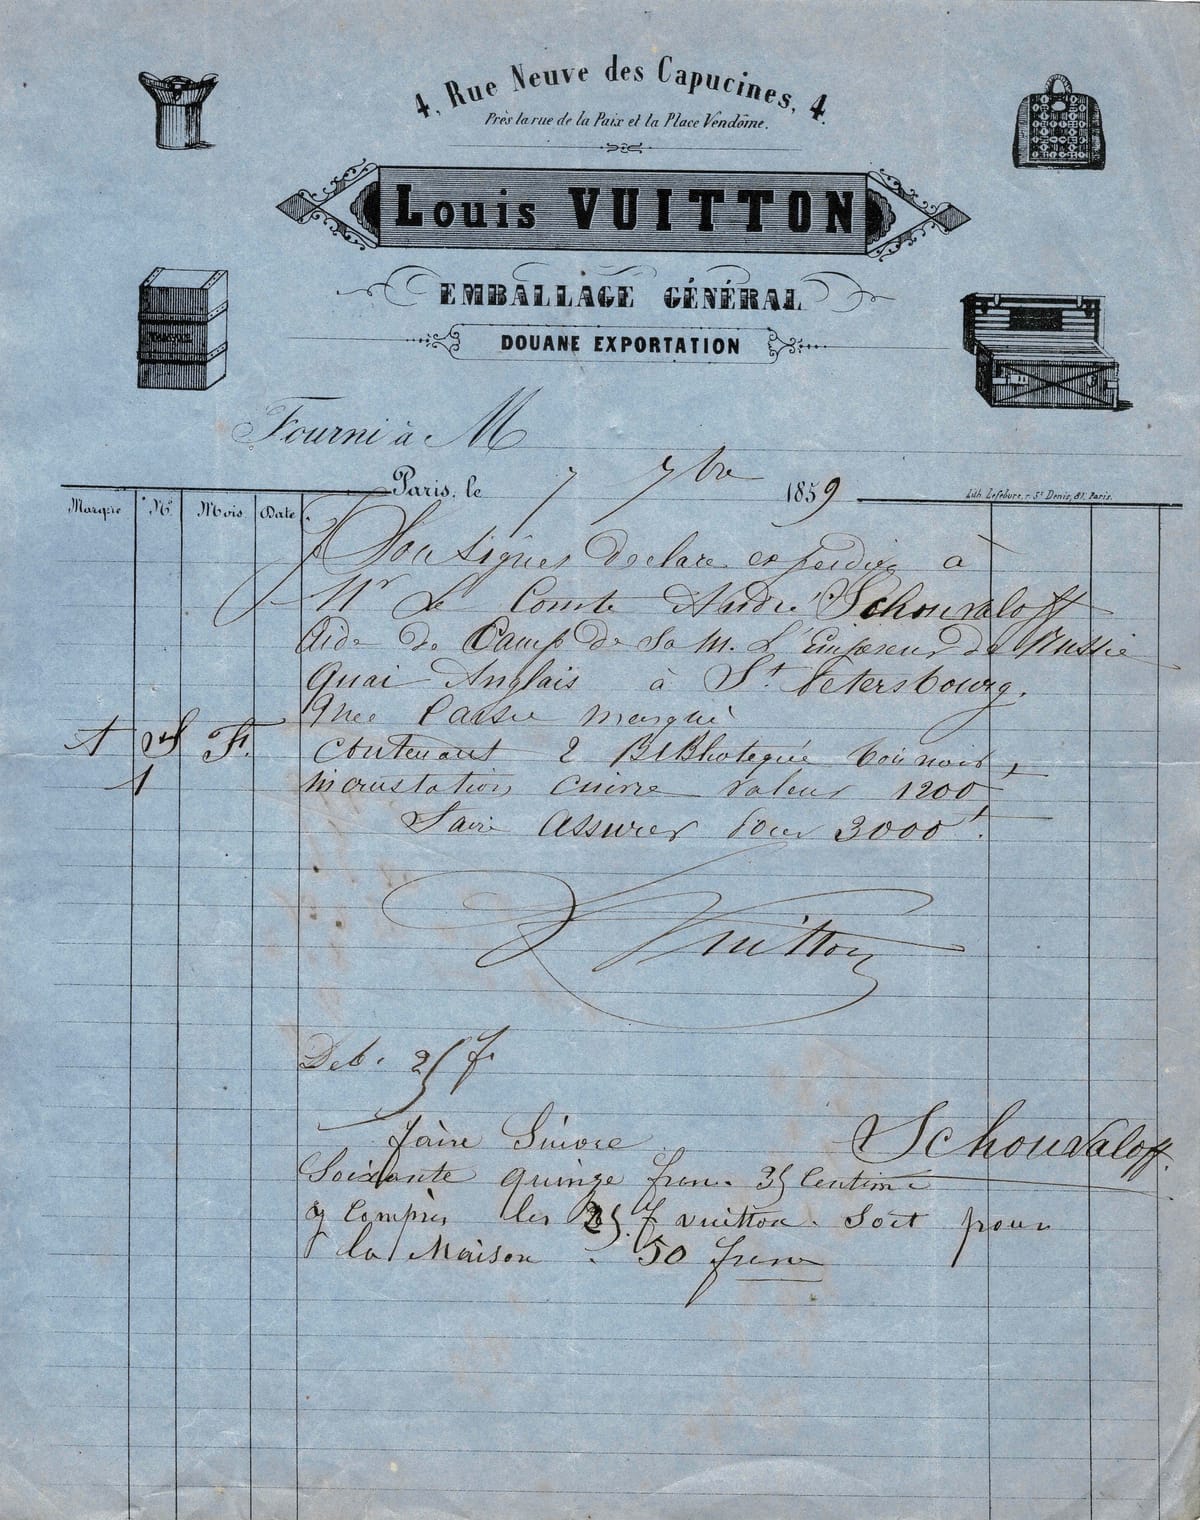 4, Rue Neuve des Capucines, 4.
Près la rue de la Paix et la Place Vendôme.
Louis VUITTON
EMBALLAGE GÉNÉRAL
DOUANE EXPORTATION
Fourni à M
Paris, le 7 7bre 1859
Lith. Lefebure, r. St Denis, 81, Paris.
Marque No Mois Date
Je Sousignes declare expediez à
Mr Le Comte André Schouvaloff
Aide de Camp de Sa M. L'Empereur de Russie
Quai Anglais à St Petersbourg.
Une Caisse marqué
A S F. contenant 2 Bibliotequé boi noir,
1 incrustation cuivre valeur 1200
Faire assurer pour 3000 f.
L Vuitton
Deb. 25 f
faire Suivre Schouvaloff.
Soixante quinze fran. 35 Centime
y Compris les 25 f vuitton. Soit pour
la Maison. 50 fran